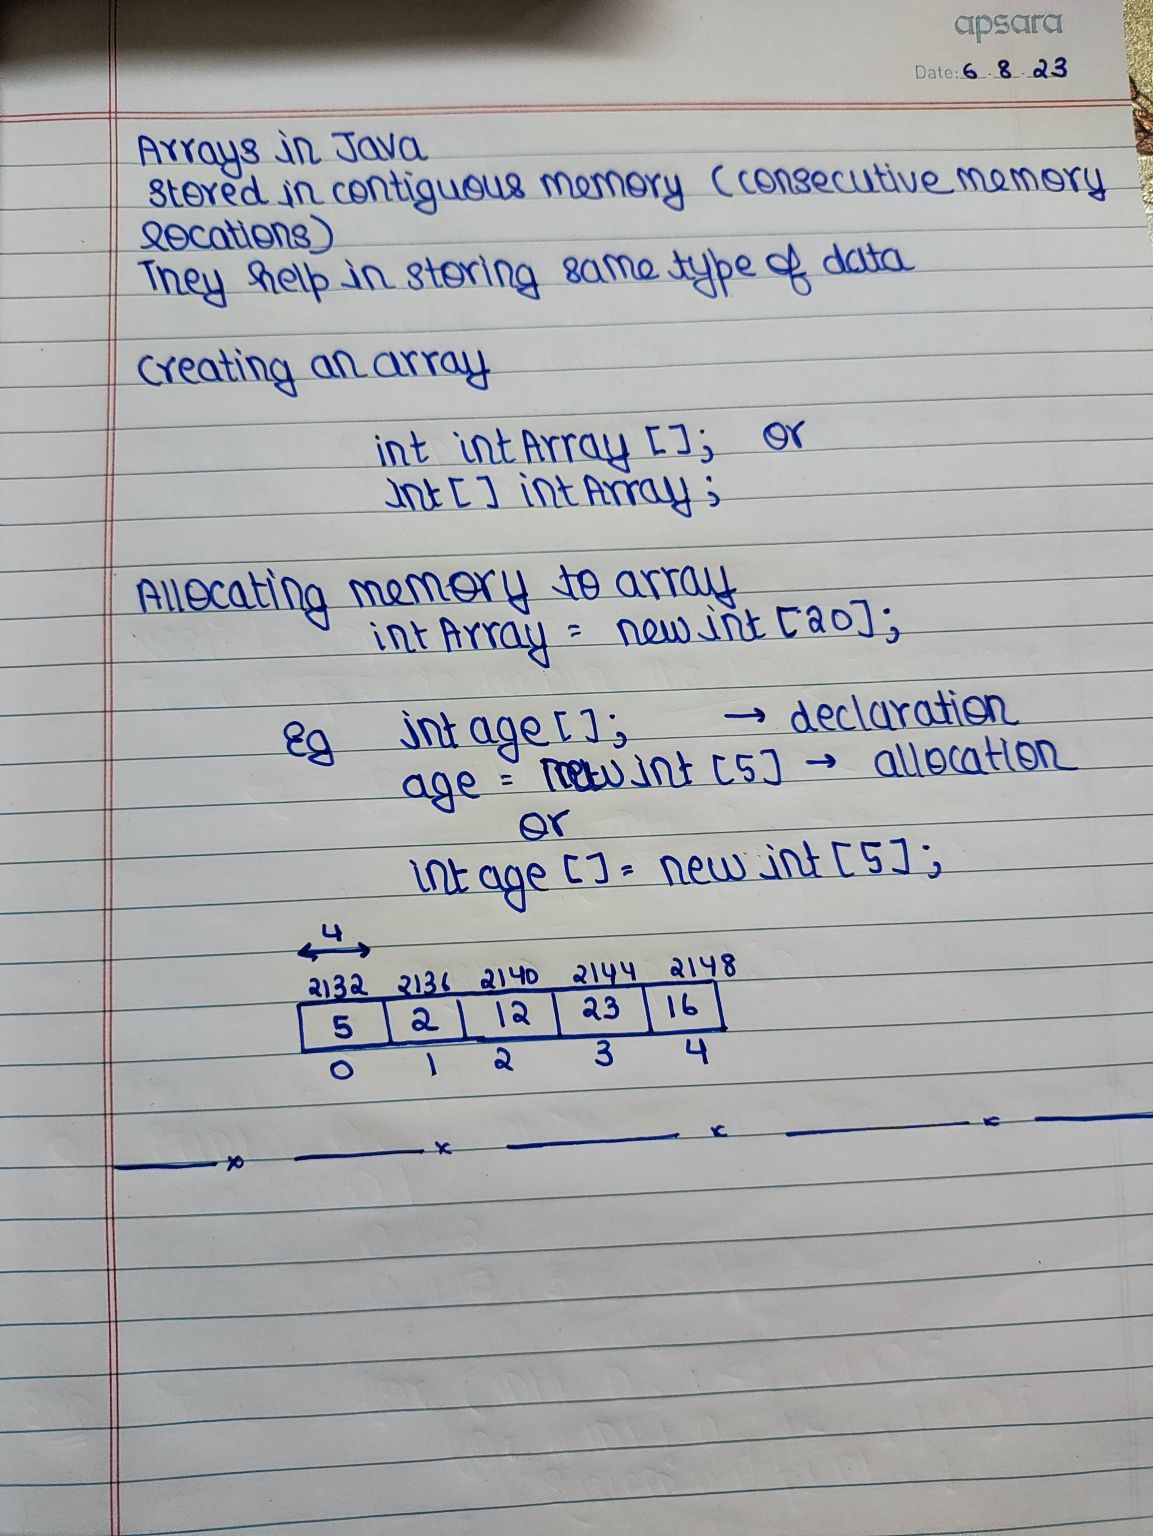 apsara
Date: 6 . 8 . 23
Arrays in Java
Stored in contiguous memory (consecutive memory
locations)
They help in storing same type of data
Creating an array
int intArray []; or
int [] intArray;
Allocating memory to array
intArray = new int [20];
Eg int age []; → declaration
age = new int [5] → allocation
or
int age [] = new int [5];
4
2132 2136 2140 2144 2148
5 2 12 23 16
0 1 2 3 4